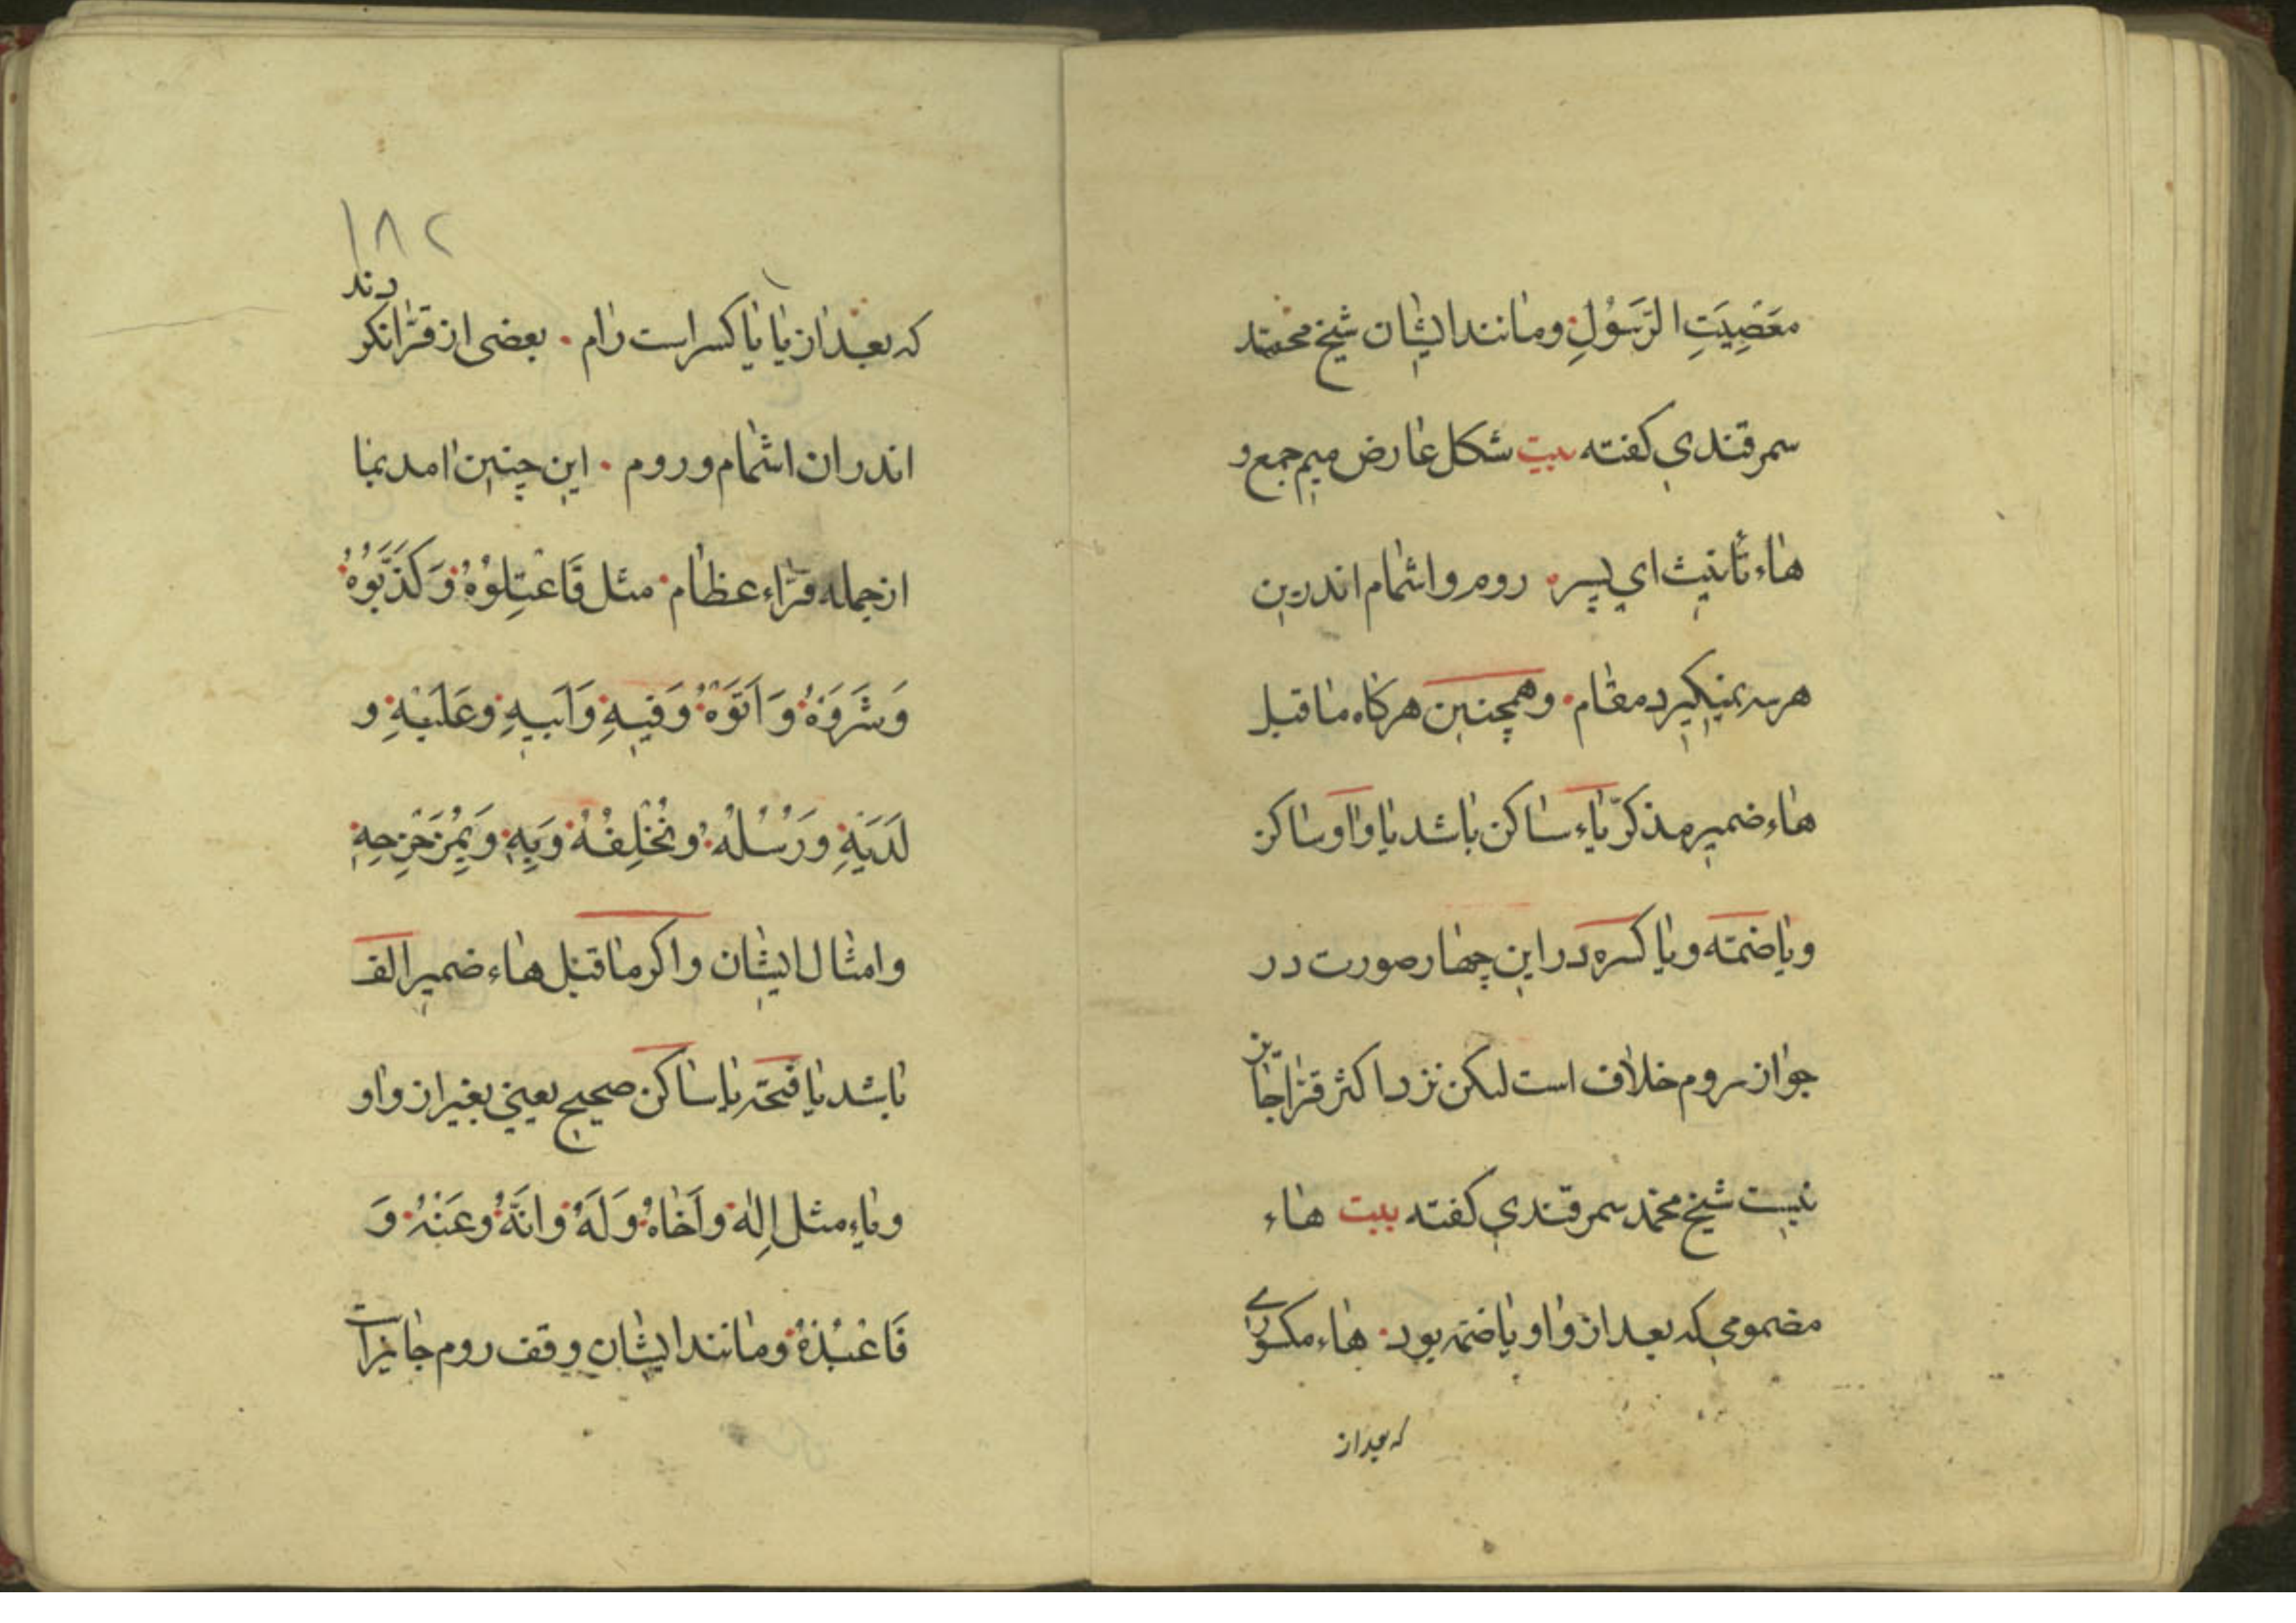 معَصِیَتِ الرَّسَوُلِ ومانند ایشان شیخ محمّد
سمرقندی کفته بیت شکل عارض میم جمع و
هاء تأنیث ای پسر روم واشمام اندرین
هر سه نمیکیرد مقام وهمچنین هرکاه ماقبل
هاء ضمیر مذکّر یاء ساکن باشد یا واو ساکن
ویا ضمّه ویا کسره در این چهار صورت در
جواز روم خلاف است لیکن نزد اکثر قرّا جایز
نیست شیخ محمّد سمرقندی کفته بیت هاء
مضمومی که بعد از واو یا ضمّه بود هاء مکسوری
که بعد از
۱۸۲
که بعد از یا یا کسر است رام بعضی از قرّا نکردند
اندر ان اشمام وروم این چنین امد بما
از جمله قرّاء عظام مثل فَاعْتِلوُهُ وَکَذَّبَوُهُ
وَشَرَوَهُ وَاَتَوْهُ وَفیِهِ وَاَبیهِ وعَلَیْهِ و
لَدَیْهِ ورَسُلُهُ ونُخْلِفُهُ وَبِهِ وَبِمُزَحْزِحِهِ
وامثال ایشان واکر ماقبل هاء ضمیر الف
باشد یا فتحه یا ساکن صحیح یعنی بغیر از واو
ویاء مثل اِلٰهَ واَخاهُ وَلَهُ وانَّهُ وعَنْهُ وَ
فَاعْبُدْهُ ومانند ایشان وقف روم جایز است